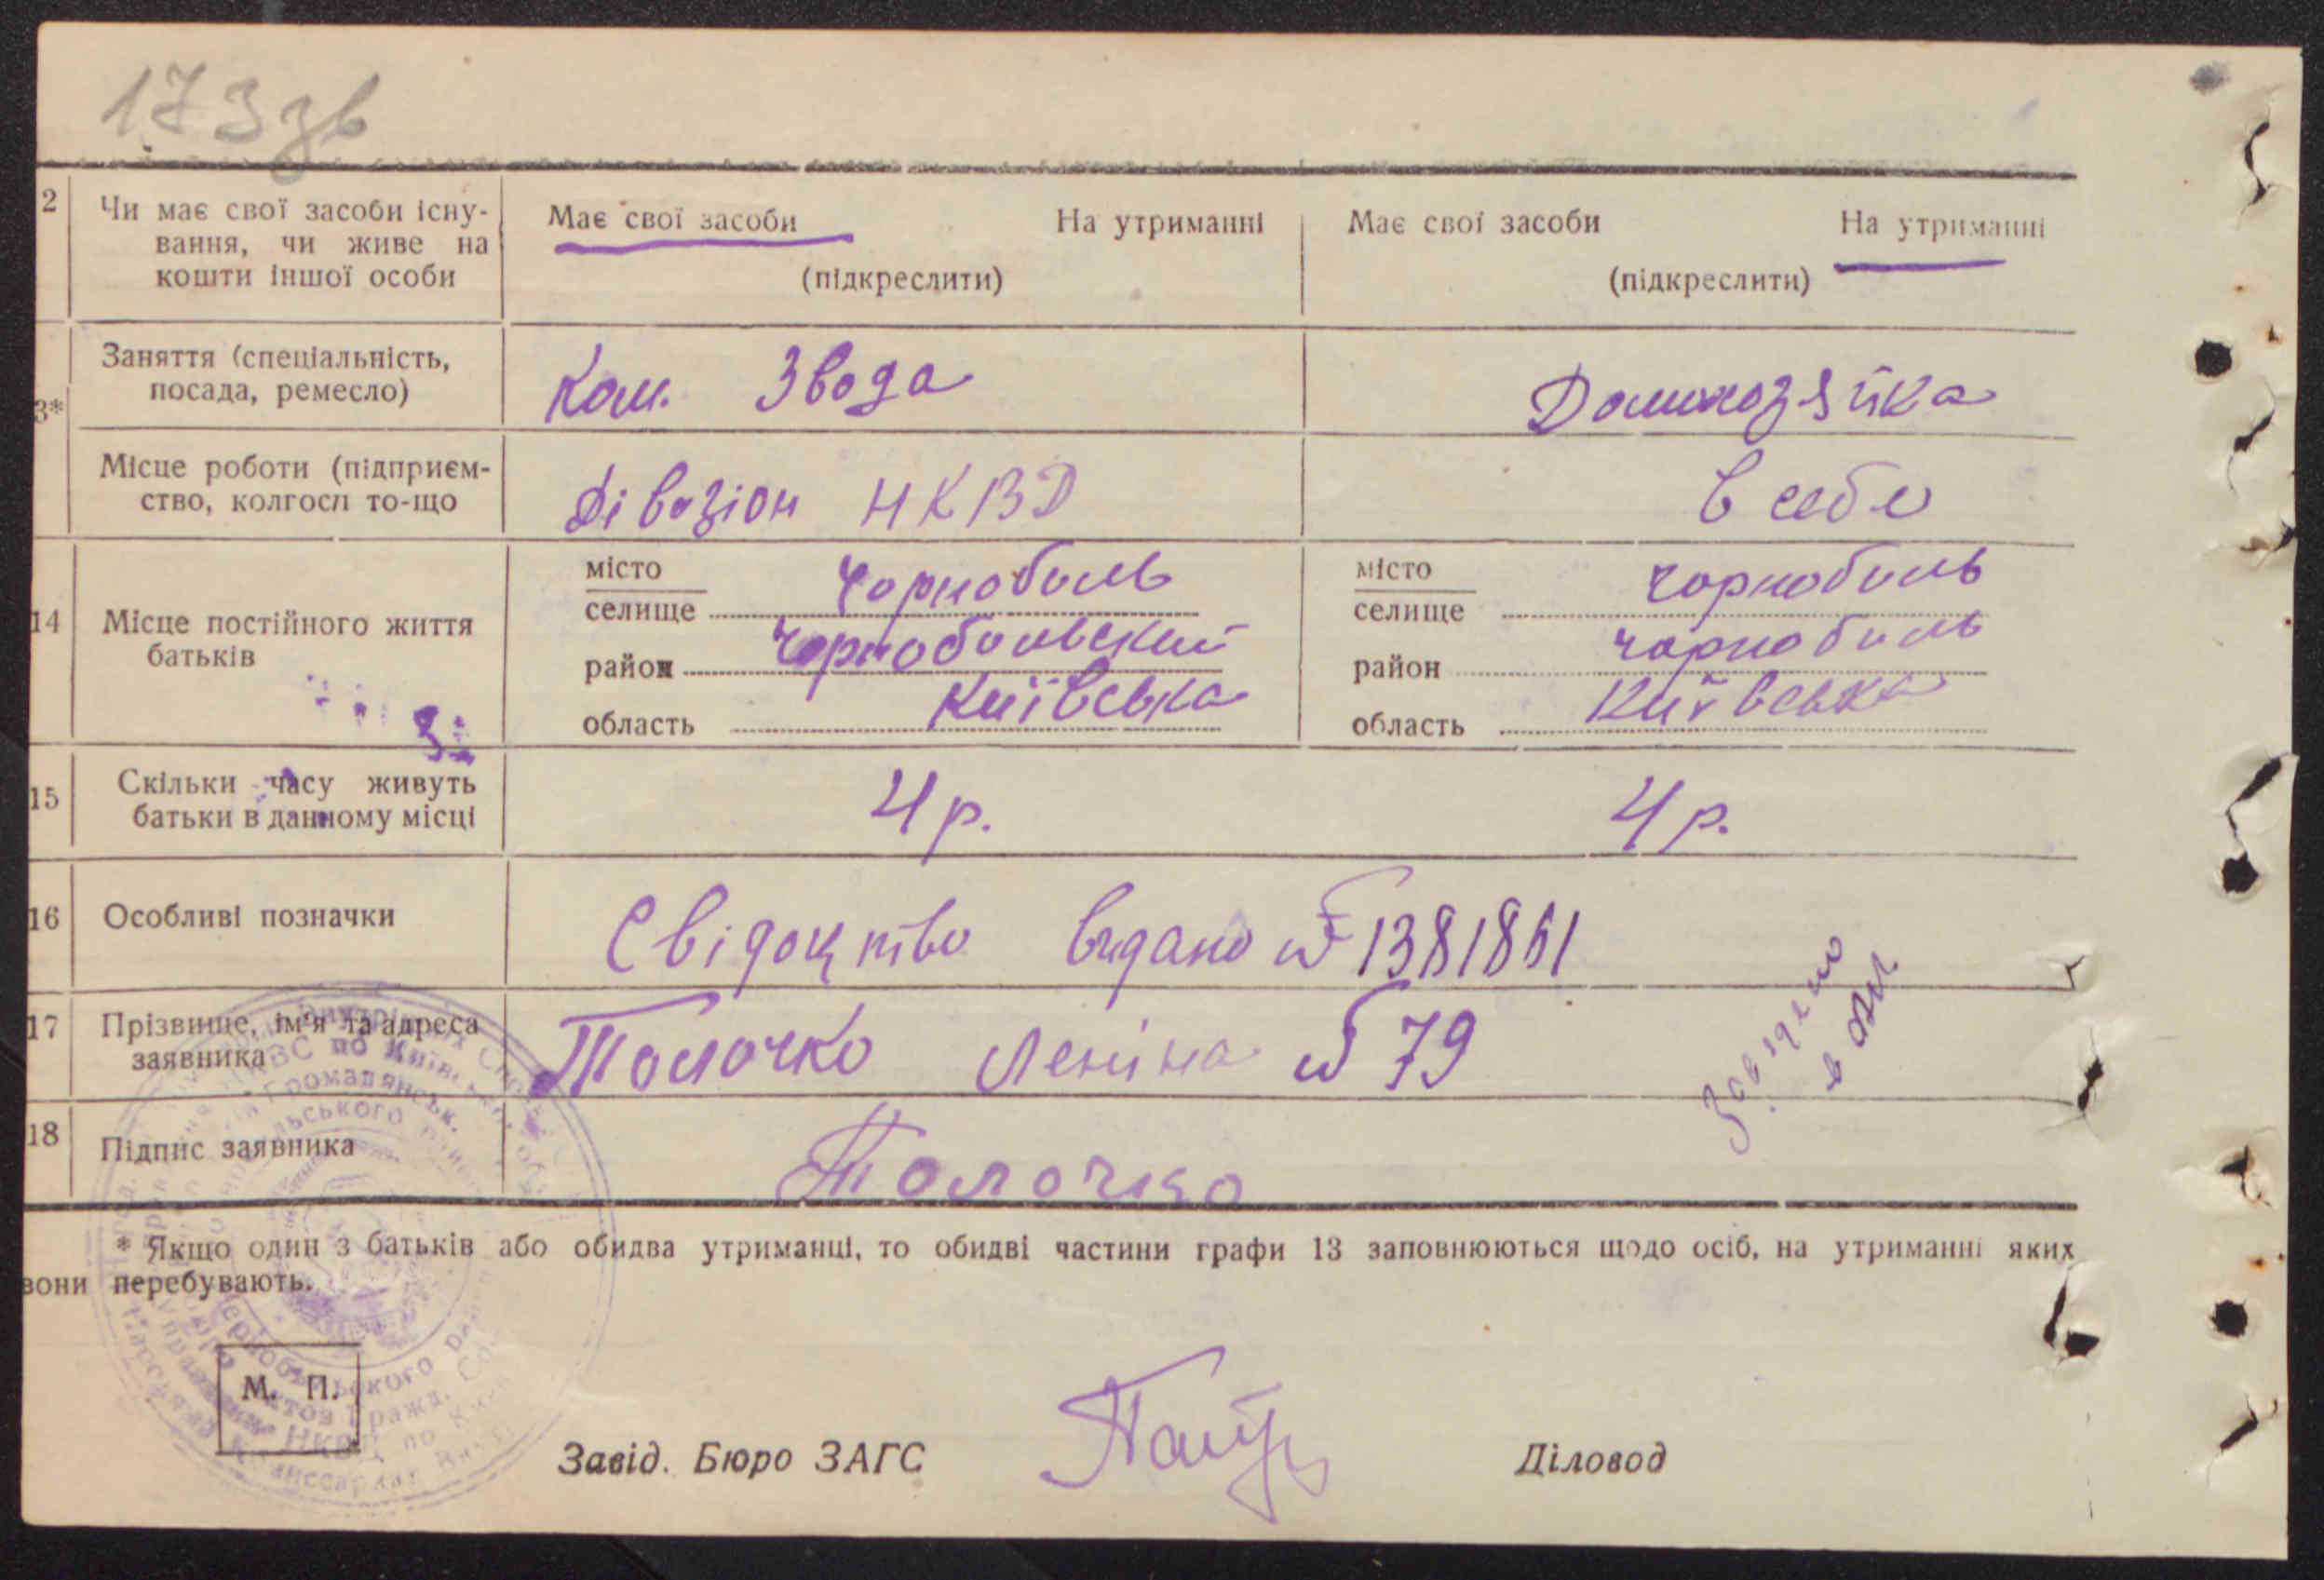 173 зв
2 Чи має свої засоби існу-
вання, чи живе на
кошти іншої особи
Має свої засоби На утриманні
(підкреслити)
Має свої засоби На утриманні
(підкреслити)
3* Заняття (спеціальність,
посада, ремесло)
Ком. Звода
Домохозяйка
Місце роботи (підприєм-
ство, колгосп то-що
Дівізіон НКВД
в себе
14 Місце постійного життя
батьків
місто
селище Чорнобиль
район Чорнобильский
область Київська
місто
селище Чорнобиль
район Чорнобиль
область Київська
15 Скільки часу живуть
батьки в данному місці
4 р.
4 р.
16 Особливі позначки
Свідоцтво видано № 1381861
17 Прізвище, ім'я та адреса
заявника
Толочко Леніна № 79
18 Підпис заявника
Толочко
* Якщо один з батьків або обидва утриманці, то обидві частини графи 13 заповнюються щодо осіб, на утриманні яких
вони перебувають.
М. П.
Завід. Бюро ЗАГС
Діловод